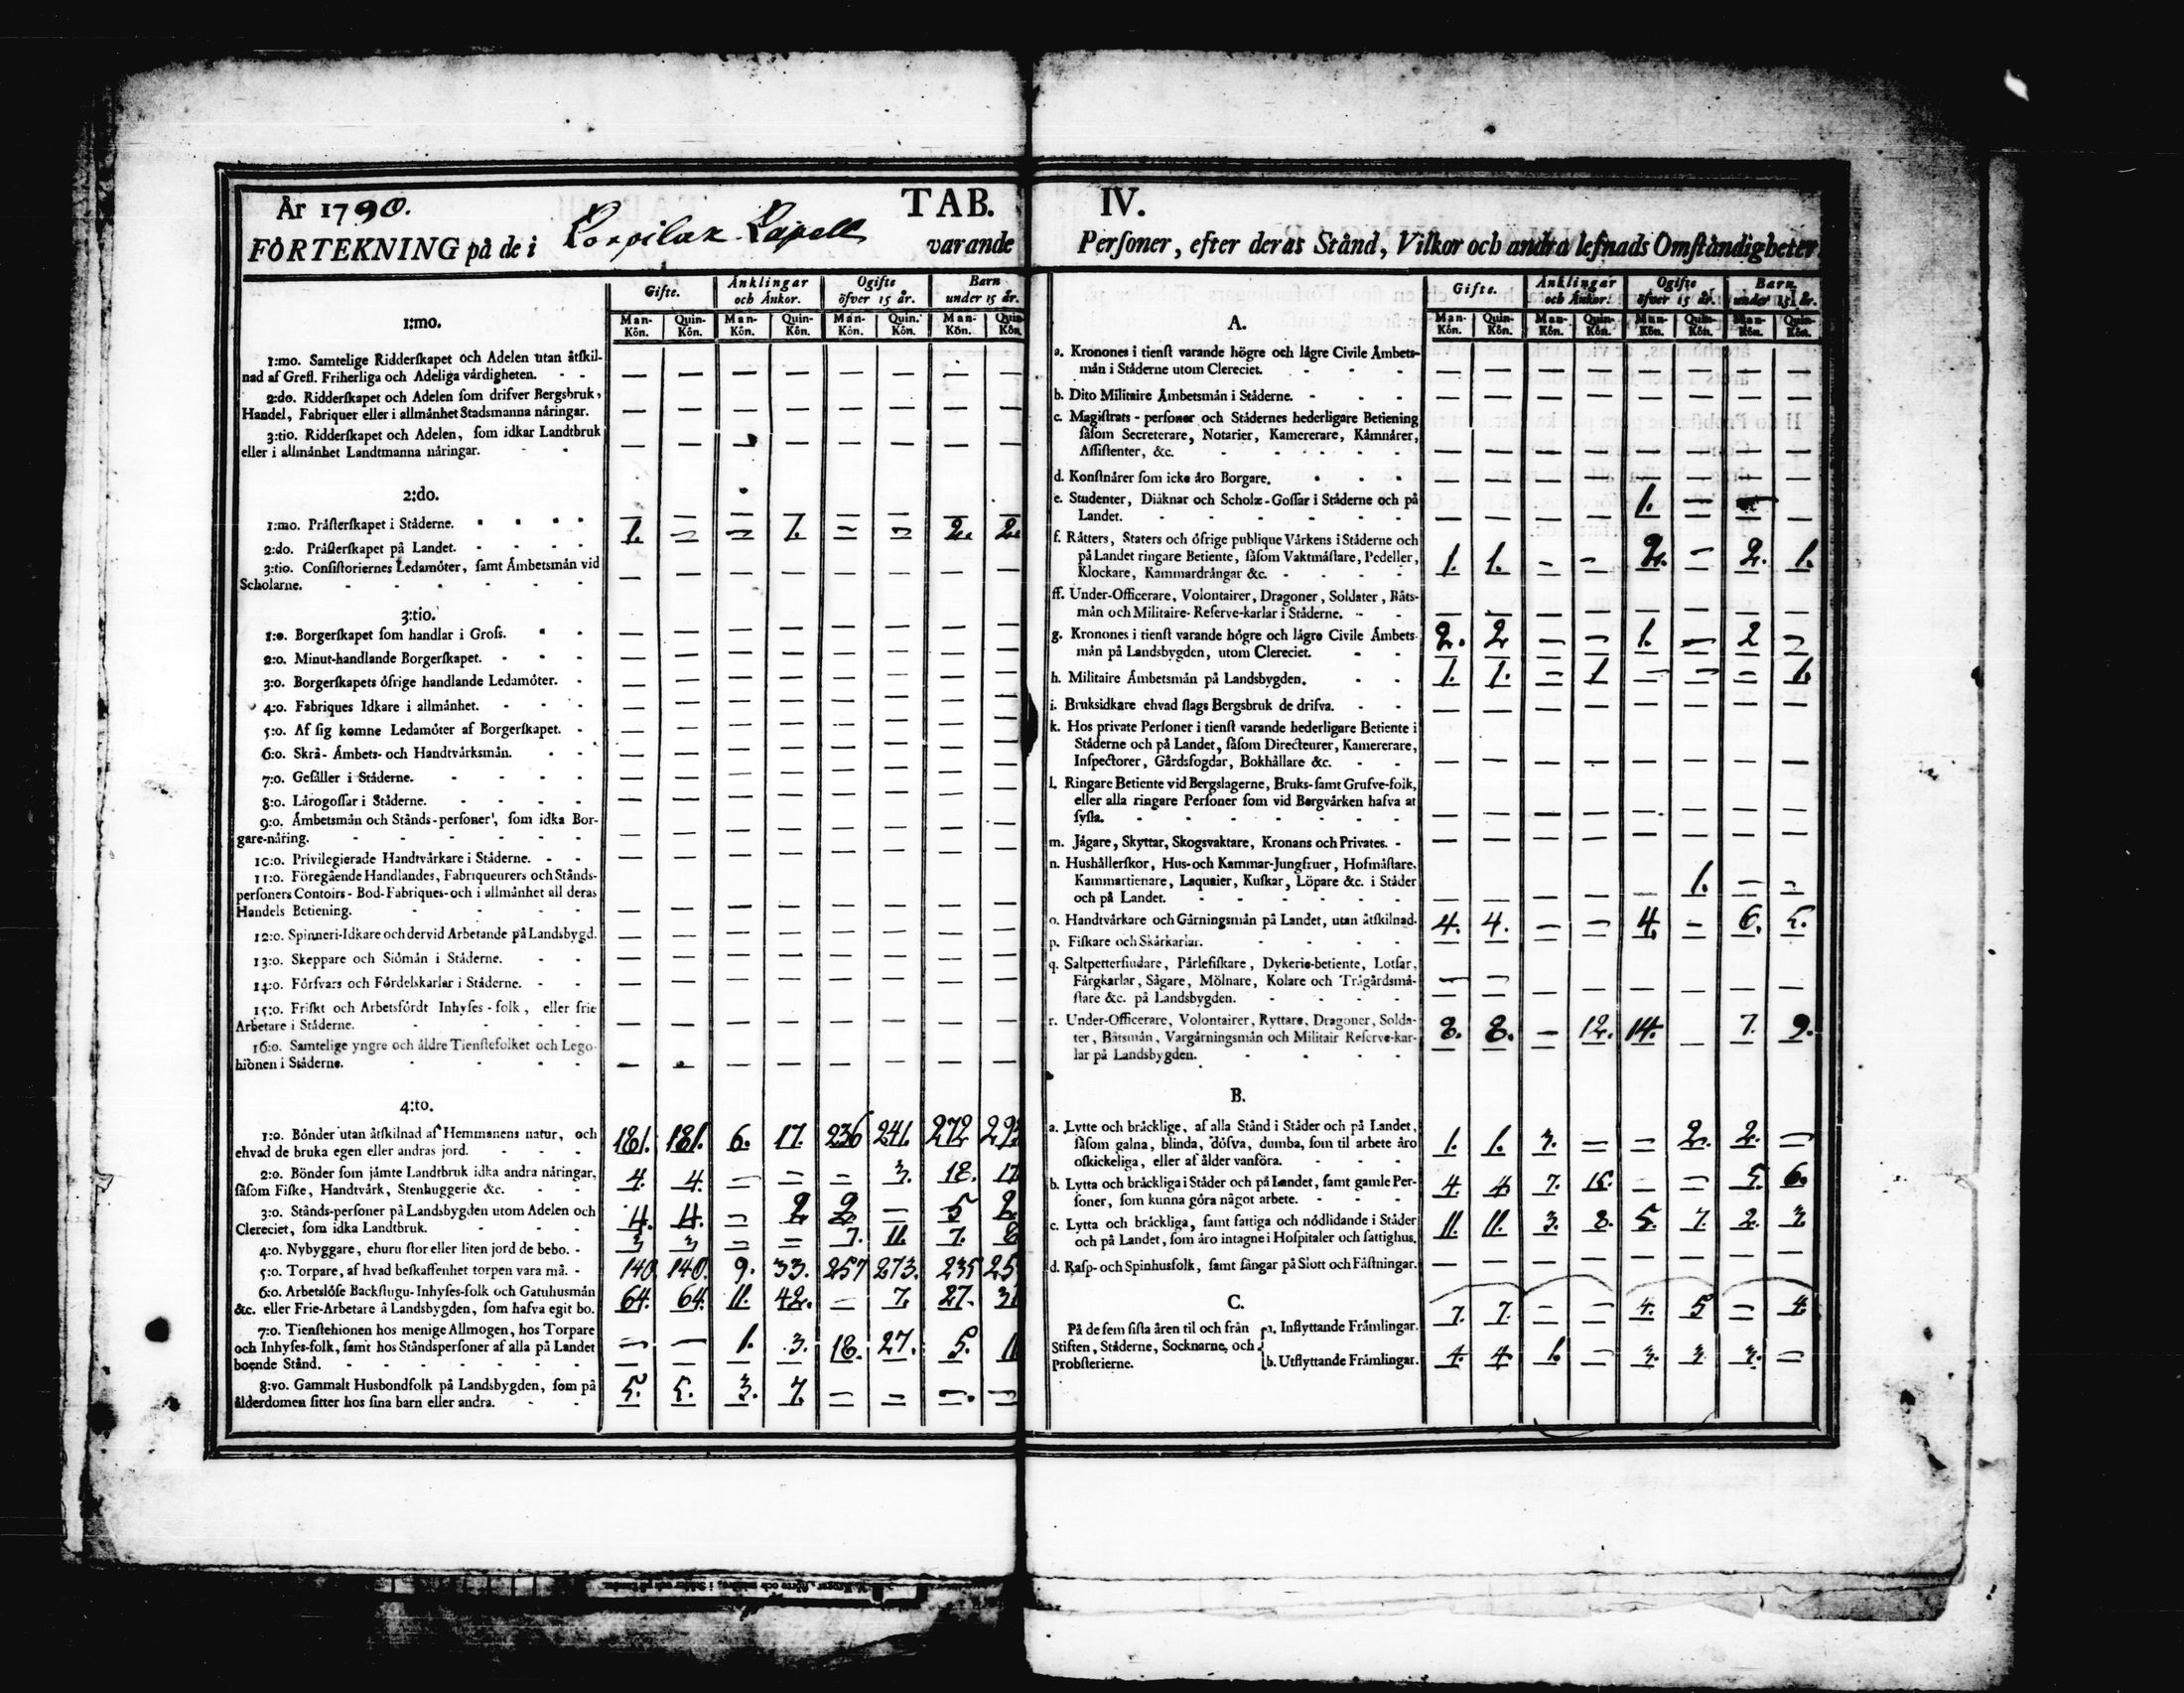 År 1790. TAB. IV.
FÖRTEKNING på de i Corpilax Capell varande Perſoner, efter deras Stånd, Vilkor och andra lefnads Omſtåndigheter
Gifte. Änklingar och Änkor. Ogifte öfver 15 år. Barn under 15 år.
1:mo. Man-Kön. Quin-Kön. Man-Kön. Quin-Kön. Man-Kön. Quin-Kön. Man-Kön. Quin-Kön.
1:mo. Samtelige Ridderſkapet och Adelen utan åtſkil-
nad af Grefl. Friherliga och Adeliga vårdigheten. — — — — — — — —
2:do. Ridderſkapet och Adelen ſom drifver Bergsbruk,
Handel, Fabriquer eller i allmånhet Stadsmanna nåringar. — — — — — — — —
3:tio. Ridderſkapet och Adelen, ſom idkar Landtbruk
eller i allmånhet Landtmanna nåringar. — — — — — — — —
2:do.
1:mo. Pråſterſkapet i Ståderne. — — — — — — — —
2:do. Pråſterſkapet på Landet. 1. — — 1. — — 2. 2.
3:tio. Conſiſtoriernes Ledamöter, ſamt Åmbetsmån vid
Scholarne. — — — — — — — —
3:tio.
1:o. Borgerſkapet ſom handlar i Groſs. — — — — — — — —
2:o. Minut-handlande Borgerſkapet. — — — — — — — —
3:o. Borgerſkapets öfrige handlande Ledamöter. — — — — — — — —
4:o. Fabriques Idkare i allmånhet. — — — — — — — —
5:o. Af ſig komne Ledamöter af Borgerſkapet. — — — — — — — —
6:o. Skrå- Åmbets- och Handtvårksmån. — — — — — — — —
7:o. Geſåller i Ståderne. — — — — — — — —
8:o. Lårogoſſar i Ståderne. — — — — — — — —
9:o. Åmbetsmån och Stånds-perſoner, ſom idka Bor-
gare-nåring. — — — — — — — —
10:o. Privilegierade Handtvårkare i Ståderne. — — — — — — — —
11:o. Föregående Handlandes, Fabriqueurers och Stånds-
perſoners Contoirs- Bod- Fabriques- och i allmånhet all deras
Handels Betiening. — — — — — — — —
12:o. Spinneri-Idkare och dervid Arbetande på Landsbygd. — — — — — — — —
13:o. Skeppare och Siömån i Ståderne. — — — — — — — —
14:o. Förſvars och Fördelskarlar i Ståderne. — — — — — — — —
15:o. Friſkt och Arbetsfördt Inhyſes-folk, eller frie
Arbetare i Ståderne. — — — — — — — —
16:o. Samtelige yngre och åldre Tienſtefolket och Lego-
hionen i Ståderne. — — — — — — — —
4:to.
1:o. Bönder utan åtſkilnad af Hemmanens natur, och
ehvad de bruka egen eller andras jord. 181. 181. 6. 17. 236 241. 272
2:o. Bönder ſom jåmte Landtbruk idka andra nåringar,
ſåſom Fiſke, Handtvårk, Stenhuggerie &c. 4. 4. — — — 3. 18.
3:o. Stånds-perſoner på Landsbygden utom Adelen och
Clereciet, ſom idka Landtbruk. 4. 4. — 2 2. — 5 2.
4:o. Nybyggare, ehuru ſtor eller liten jord de bebo. 3 3 — — 7. 11. 7. 8
5:o. Torpare, af hvad beſkaffenhet torpen vara må. 140 140. 9. 33. 257 273. 235
6:o. Arbetslöſe Backſtugu- Inhyſes-folk och Gatuhusmån
&c. eller Frie-Arbetare å Landsbygden, ſom hafva egit bo. 64. 64. 11. 42. — 7. 27.
7:o. Tienſtehionen hos menige Allmogen, hos Torpare
och Inhyſes-folk, ſamt hos Ståndsperſoner af alla på Landet
boende Stånd. — — 1. 3. 18. 27. 5. 11
8:vo. Gammalt Husbondfolk på Landsbygden, ſom på
ålderdomen ſitter hos ſina barn eller andra. 5. 5. 3. 7. — — — —
Gifte. Änklingar och Änkor. Ogifte öfver 15 år. Barn under 15 år.
A. Man-Kön. Quin-Kön. Man-Kön. Quin-Kön. Man-Kön. Quin-Kön. Man-Kön. Quin-Kön.
a. Kronones i tienſt varande högre och lågre Civile Åmbets-
mån i Ståderne utom Clereciet. — — — — — — — —
b. Dito Militaire Åmbetsmån i Ståderne. — — — — — — — —
c. Magiſtrats-perſoner och Stådernes hederligare Betiening
ſåſom Secreterare, Notarier, Kamererare, Kåmnårer,
Aſſiſtenter, &c. — — — — — — — —
d. Konſtnårer ſom icke åro Borgare. — — — — — — — —
e. Studenter, Diåknar och Scholæ-Goſſar i Ståderne och på
Landet. — — — — 1. — — —
f. Råtters, Staters och öfrige publique Vårkens i Ståderne och
på Landet ringare Betiente, ſåſom Vaktmåſtare, Pedeller,
Klockare, Kammardrångar &c. 1. 1. — — 2. — 2. 1.
ff. Under-Officerare, Volontairer, Dragoner, Soldater, Båts-
mån och Militaire-Reſerve-karlar i Ståderne. — — — — — — — —
g. Kronones i tienſt varande högre och lågre Civile Åmbets-
mån på Landsbygden, utom Clereciet. 2. 2 — — 1. — 2 —
h. Militaire Åmbetsmån på Landsbygden. 1. 1. — 1 — — — 1.
i. Bruksidkare ehvad ſlags Bergsbruk de drifva. — — — — — — — —
k. Hos private Perſoner i tienſt varande hederligare Betiente i
Ståderne och på Landet, ſåſom Directeurer, Kamererare,
Inſpectorer, Gårdsfogdar, Bokhållare &c. — — — — — — — —
l. Ringare Betiente vid Bergslagerne, Bruks- ſamt Grufve-folk,
eller alla ringare Perſoner ſom vid Bergvårken hafva at
ſyſla. — — — — — — — —
m. Jågare, Skyttar, Skogsvaktare, Kronans och Privates. — — — — — — — —
n. Hushållerſkor, Hus- och Kammar-Jungfruer, Hofmåſtare,
Kammartienare, Laquaier, Kuſkar, Löpare &c. i Ståder
och på Landet. — — — — — 1. — —
o. Handtvårkare och Gårningsmån på Landet, utan åtſkilnad. 4. 4. — — 4. — 6. 5.
p. Fiſkare och Skårkarlar.
q. Saltpetterſiudare, Pårlefiſkare, Dykerie-betiente, Lotſar,
Fårgkarlar, Sågare, Mölnare, Kolare och Trågårdsmå-
ſtare &c. på Landsbygden. — — — — — — — —
r. Under-Officerare, Volontairer, Ryttare, Dragoner, Solda-
ter, Båtsmån, Vargårningsmån och Militair Reſerve-kar-
lar på Landsbygden. 8. 8. — 12. 14. — 7. 9.
B.
a. Lytte och bråcklige, af alla Stånd i Ståder och på Landet,
ſåſom galna, blinda, döfva, dumba, ſom til arbete åro
oſkickeliga, eller af ålder vanföra. 1. 1. 3. — — 2. 2. —
b. Lytta och bråckliga i Ståder och på Landet, ſamt gamle Per-
ſoner, ſom kunna göra något arbete. 4. 4. 7. 15. — — 5. 6.
c. Lytta och bråckliga, ſamt fattiga och nödlidande i Ståder
och på Landet, ſom åro intagne i Hoſpitaler och fattighus. 11. 11. 3. 8. 5. 7. 2. 3.
d. Raſp- och Spinhusfolk, ſamt fångar på Slott och Fåſtningar. — — — — — — — —
C.
På de fem ſiſta åren til och från
Stiften, Ståderne, Socknarne, och
Probſterierne.
a. Inflyttande Fråmlingar. 7. 7. — — 4. 5 — 4.
b. Utflyttande Fråmlingar. 4. 4. 1. — 3. 3. 3. —